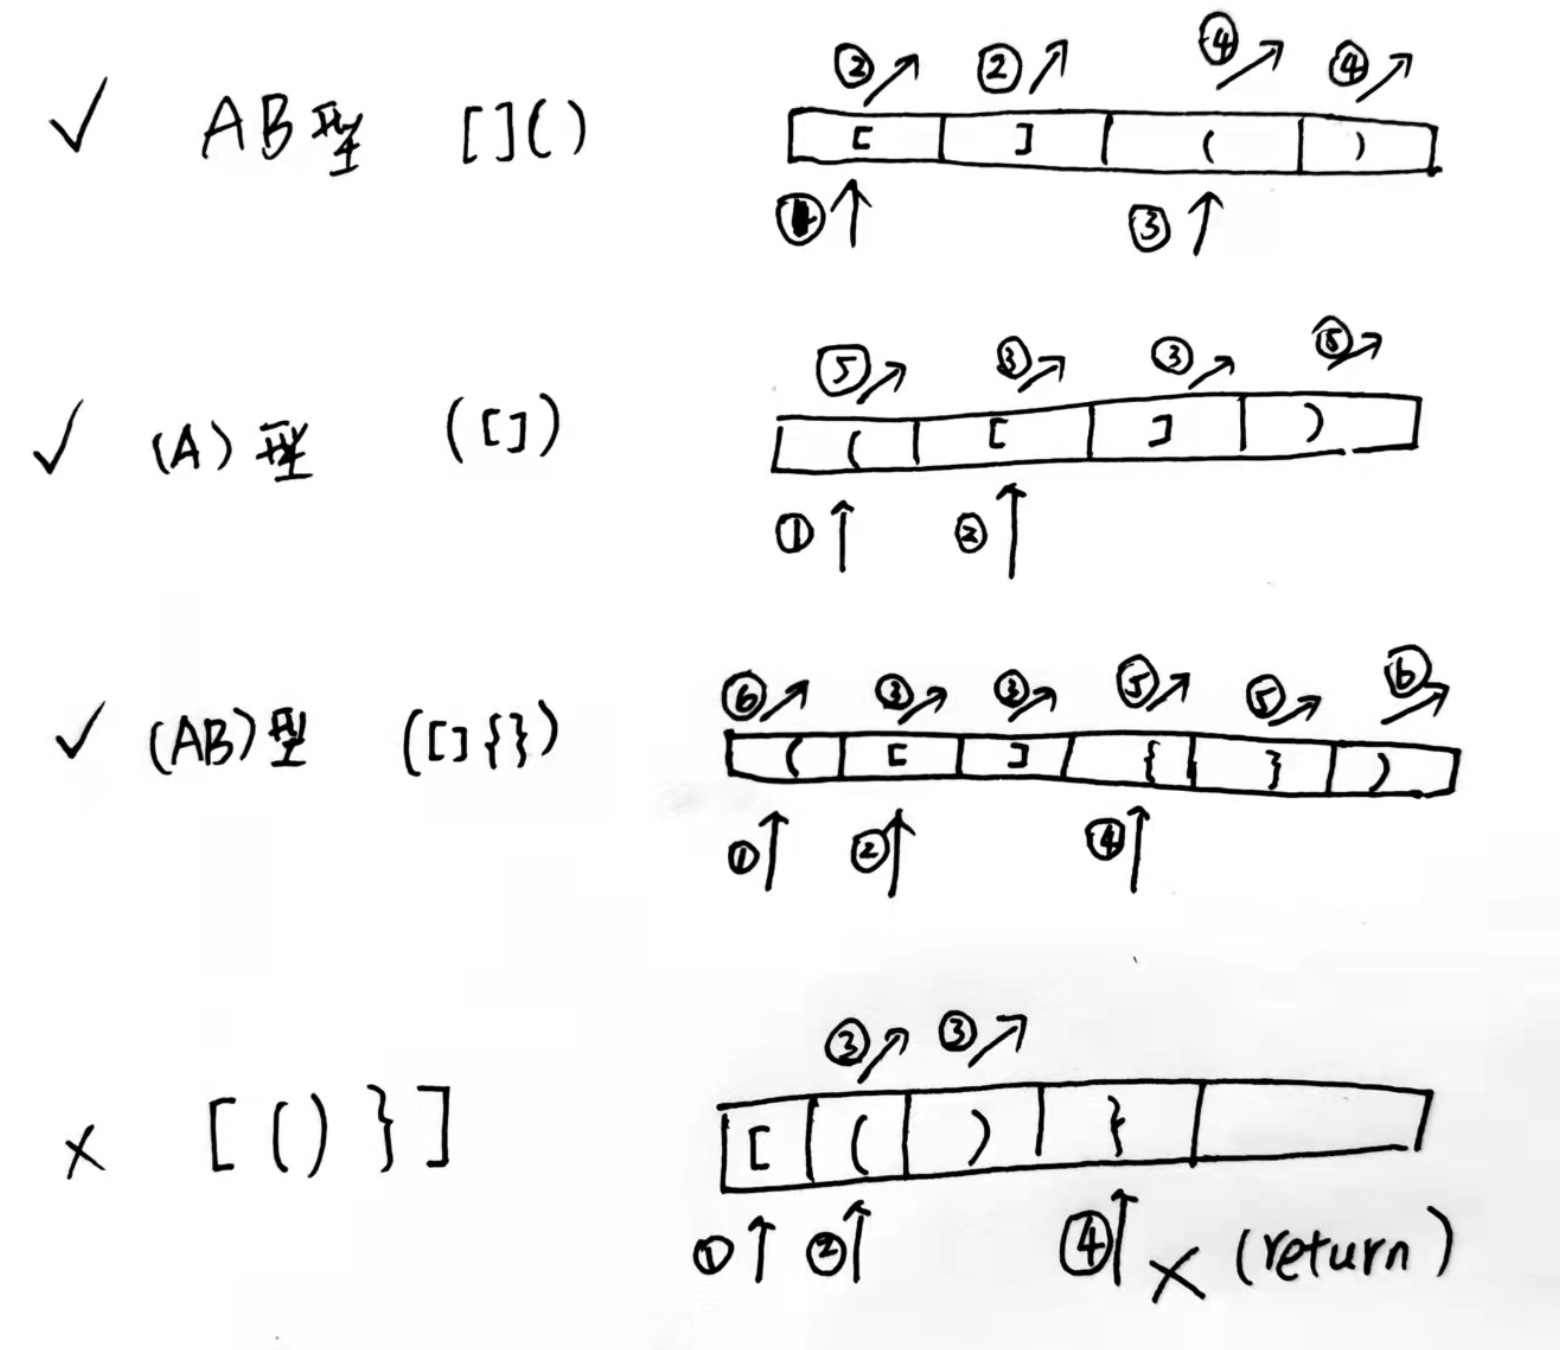 ✓ AB型 []()
② ② ④ ④
[ ] ( )
① ③
✓ (A)型 ([])
⑤ ③ ③ ⑤
( [ ] )
① ②
✓ (AB)型 ([]{})
⑥ ③ ③ ⑤ ⑤ ⑥
( [ ] { } )
① ② ④
× [()}]
③ ③
[ ( ) }
① ② ④ × (return)